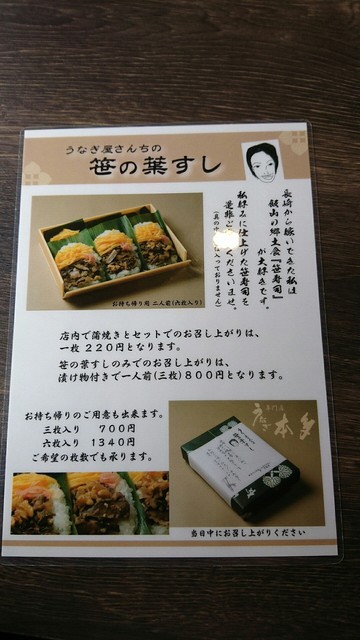 うなぎ屋さんちの
笹の葉すし
長崎から嫁いできた私は
飯山の郷土食『笹寿司』
が大好きです。
私好みに仕上げた笹寿司を
是非どうぞくださいませ。
お持ち帰り用 二人前(六枚入り)
店内で蒲焼きとセットでのお召し上がりは、
一枚 220円となります。
笹の葉すしのみでのお召し上がりは、
漬け物付きで一人前(三枚)800円となります。
お持ち帰りのご用意も出来ます。
三枚入り 700円
六枚入り 1340円
ご希望の枚数でも承ります。
専門店
うなぎ本多
当日中にお召し上がりください